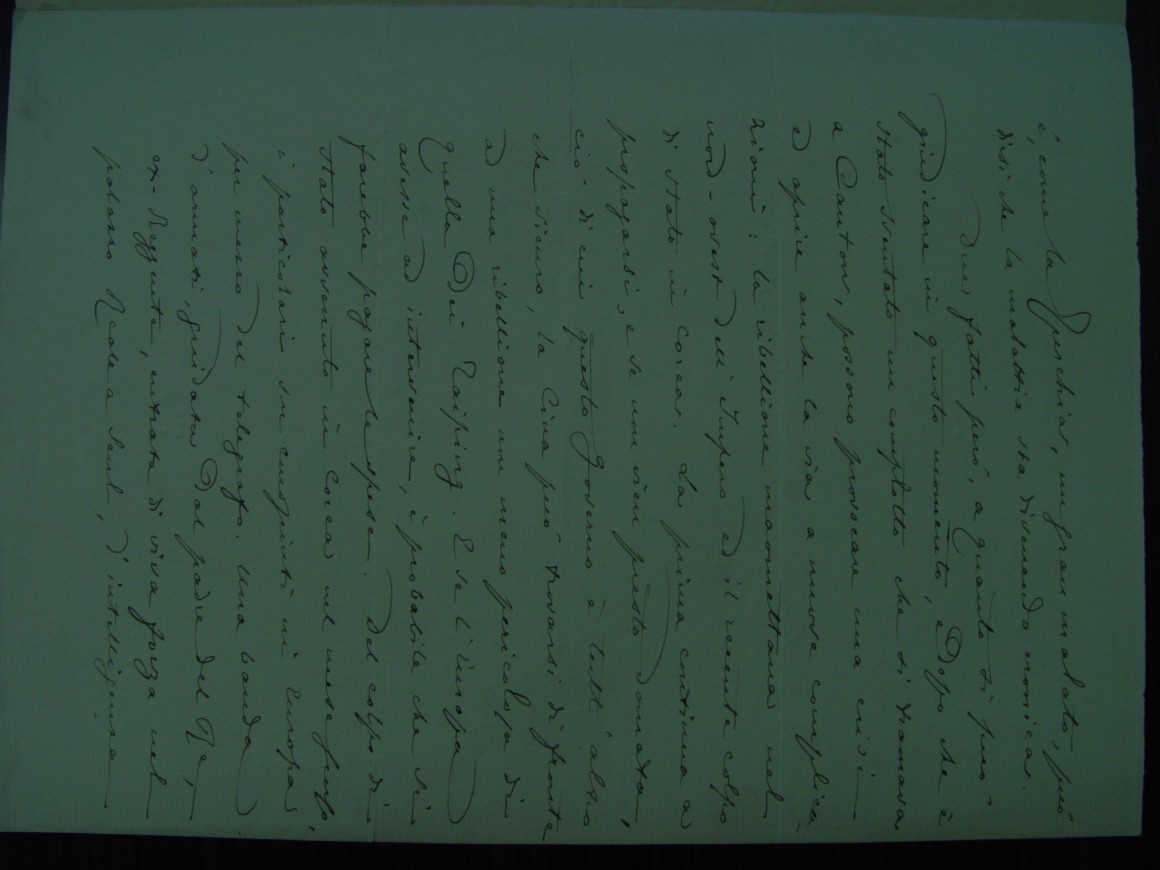 è, come la Turchia, un gran malato, può
dirsi che la malattia sta divenendo cronica.
Due fatti però, a quanto si può
giudicare in questo momento, e dopo che è
stato sventato un complotto che si tramava
a Canton, possono provocare una crisi
ed aprire anche la via a nuove complica-
zioni: la ribellione maomettana nel
nord-ovest dell'Impero ed il recente colpo
di stato in Corea. La prima continua a
propagarsi, e se non vien presto domata,
ciò di cui questo Governo è tutt'altro
che sicuro, la Cina può trovarsi di fronte
ad una ribellione non meno pericolosa di
quella dei Taiping. E se l'Europa
avesse ad intervenire, è probabile che si
farebbe pagare le spese. Del colpo di
stato avvenuto in Corea nel mese scorso,
i particolari son conosciuti in Europa
per mezzo del telegrafo. Una banda
d'armati, guidata dal padre del Re,
ex-Reggente, entrata di viva forza nel
palazzo Reale a Seul, d'intelligenza